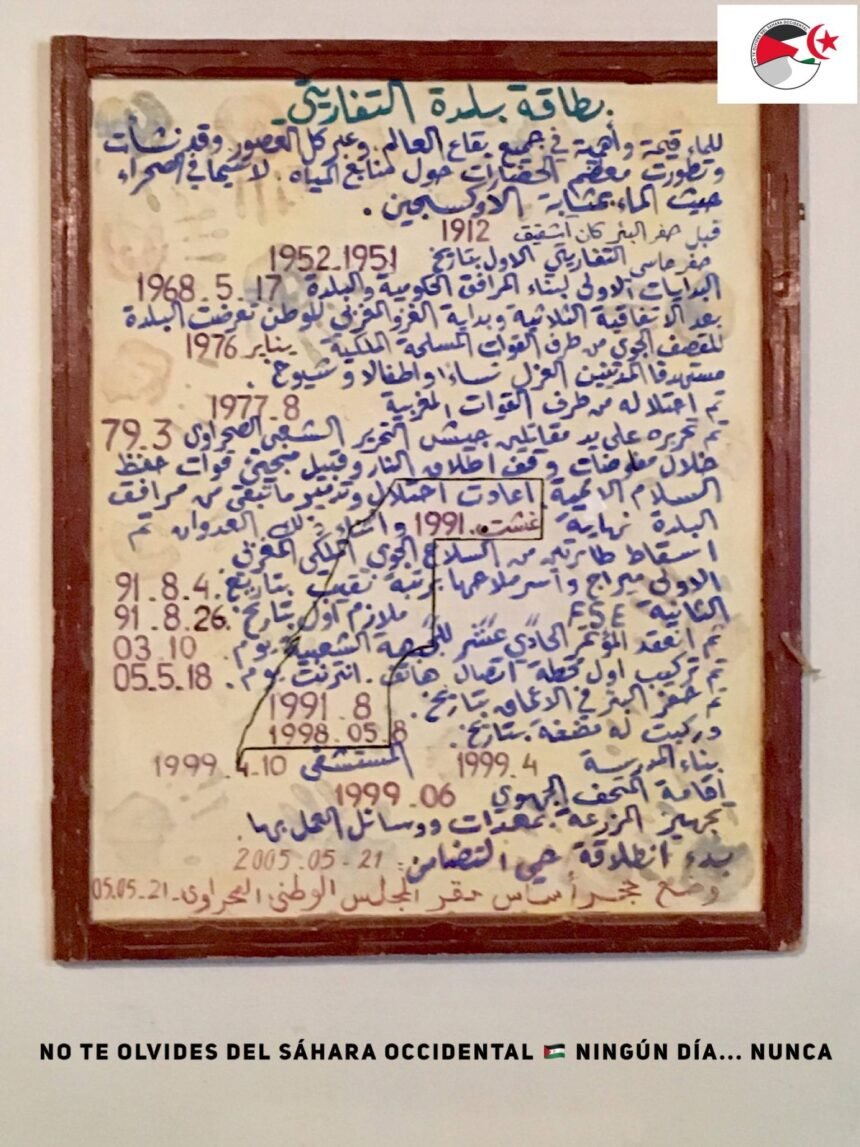 NO TE OLVIDES DEL SÁHARA OCCIDENTAL
بطاقة بلدة التفاريتي
للماء قيمة وأهمية في جميع بقاع العالم وعبر كل العصور وقد نشأت
وتطورت معظم الحضارات حول منابع المياه. لاسيما في الصحراء
حيث الماء بمثابة الاوكسجين.
قبل حفر البئر كان اشقيق 1912
حفر حاسي التفاريتي الاول بتاريخ 1951_1952
البدايات الاولى لبناء المرافق الحكومية والبلدة 17_5_1968
بعد الاتفاقية الثلاثية وبداية الغزو المغربي للوطن تعرضت البلدة
للقصف الجوي من طرف القوات المسلحة الملكية يناير 1976
مستهدفا المدنيين العزل نساءا واطفالا وشيوخ.
تم احتلاله من طرف القوات المغربية 8_1977
تم تحريره على يد مقاتلين جيش التحرير الشعبي الصحراوي 79.3
خلال مفاوضات وقف اطلاق النار وقبيل مجيئ قوات حفظ
السلام الاممية اعادت احتلال وتدمير ما تبقى من مرافق
البلدة نهاية غشت. 1991 واثناء ذلك العدوان تم
اسقاط طائرتين من السلاح الجوي الملكي المغربي
الاولى ميراج وأسر ملاحها برتبة نقيب بتاريخ. 4_8_91
الثانية F5E ملازم اول بتاريخ. 26_8_91
تم انعقد المؤتمر الحادي عشر للجبهة الشعبية يوم. 10_03
تم تركيب اول محطة اتصال هاتف. انترنت يوم. 18_5_05
تم حفر البئر في الاعماق بتاريخ. 8_1991
وركبت له مضخة بتاريخ. 8_05_1998
بناء المدرسة 4_1999 المستشفى 10_4_1999
اقامة المتحف الجهوي 06_1999
تجهيز المزرعة بمعدات ووسائل العمل بها.
بدء انطلاقة حي التضامن: 21-05-2005
وضع حجر أساس مقر المجلس الوطني الصحراوي_21_05_05
NO TE OLVIDES DEL SÁHARA OCCIDENTAL 🇪🇭 NINGÚN DÍA... NUNCA